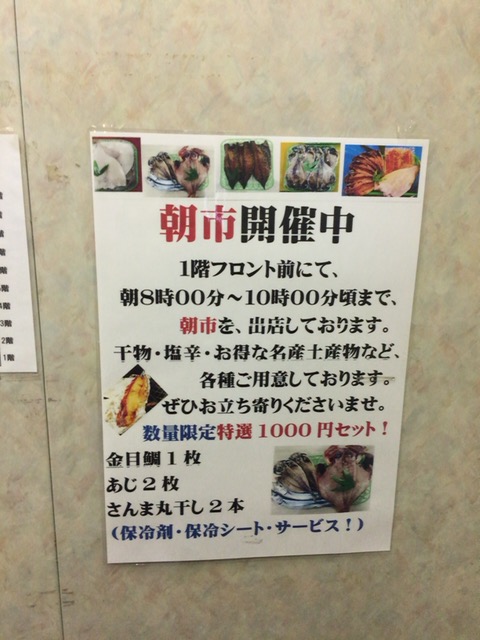 朝市開催中
1階フロント前にて、
朝8時00分～10時00分頃まで、
朝市を、出店しております。
干物・塩辛・お得な名産土産物など、
各種ご用意しております。
ぜひお立ち寄りくださいませ。
数量限定特選1000円セット！
金目鯛1枚
あじ2枚
さんま丸干し2本
（保冷剤・保冷シート・サービス！）
階
階
階
階
階
3階
2階
1階